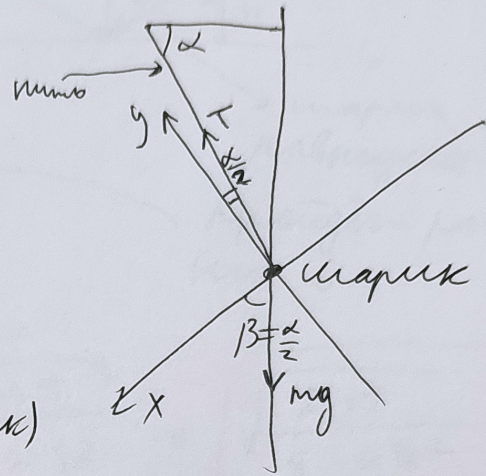 α
нить
y
T
α/2
шарик
β = α/2
x
mg
к)